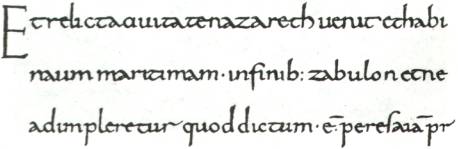 Et relicta ciuitate nazareth uenit et habi
naum maritimam · infinib: zabulon et ne
adimpleretur quod dictum · ē peresaiā pr